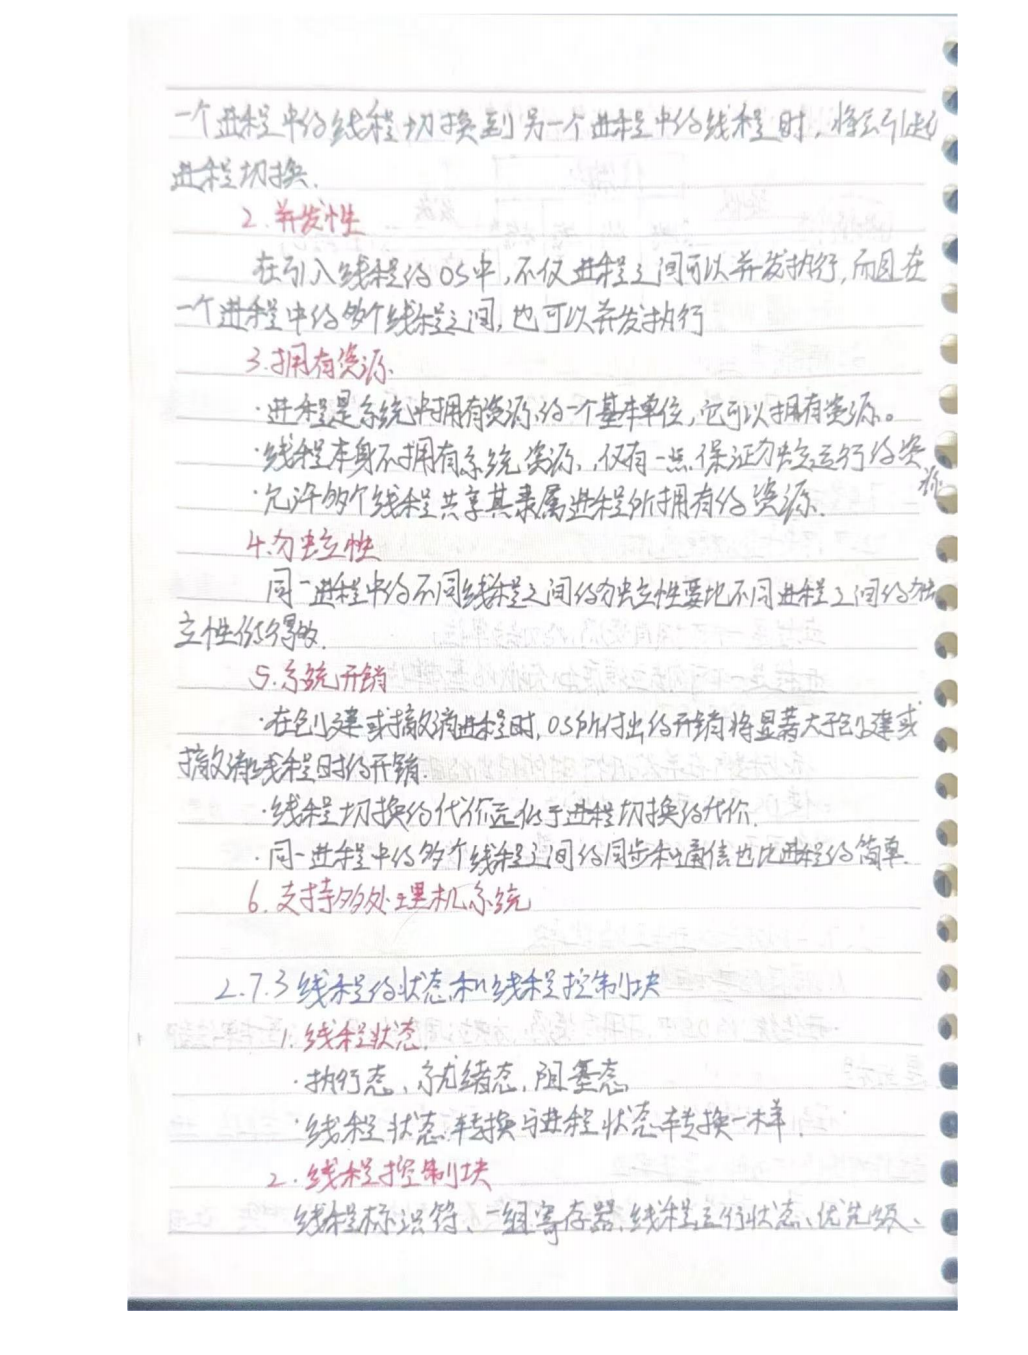 一个进程中的线程切换到另一个进程中的线程时，将会引起
进程切换.
2.并发性
在引入线程的OS中，不仅进程之间可以并发执行，而且在
一个进程中的多个线程之间，也可以并发执行
3.拥有资源
·进程是系统中拥有资源的一个基本单位，它可以拥有资源。
·线程本身不拥有系统资源，仅有一点保证独立运行的资
源
·允许多个线程共享其隶属进程所拥有的资源.
4.独立性
同一进程中的不同线程之间的独立性要比不同进程之间的独
立性低得多.
5.系统开销
·在创建或撤消进程时，OS所付出的开销将显著大于创建或
撤消线程时的开销.
·线程切换的代价远低于进程切换的代价.
·同一进程中的多个线程之间的同步和通信也比进程的简单.
6.支持多处理机系统
2.7.3线程的状态和线程控制块
1.线程状态.
·执行态、就绪态、阻塞态
·线程状态转换与进程状态转换一样.
2.线程控制块
线程标识符、一组寄存器、线程运行状态、优先级、